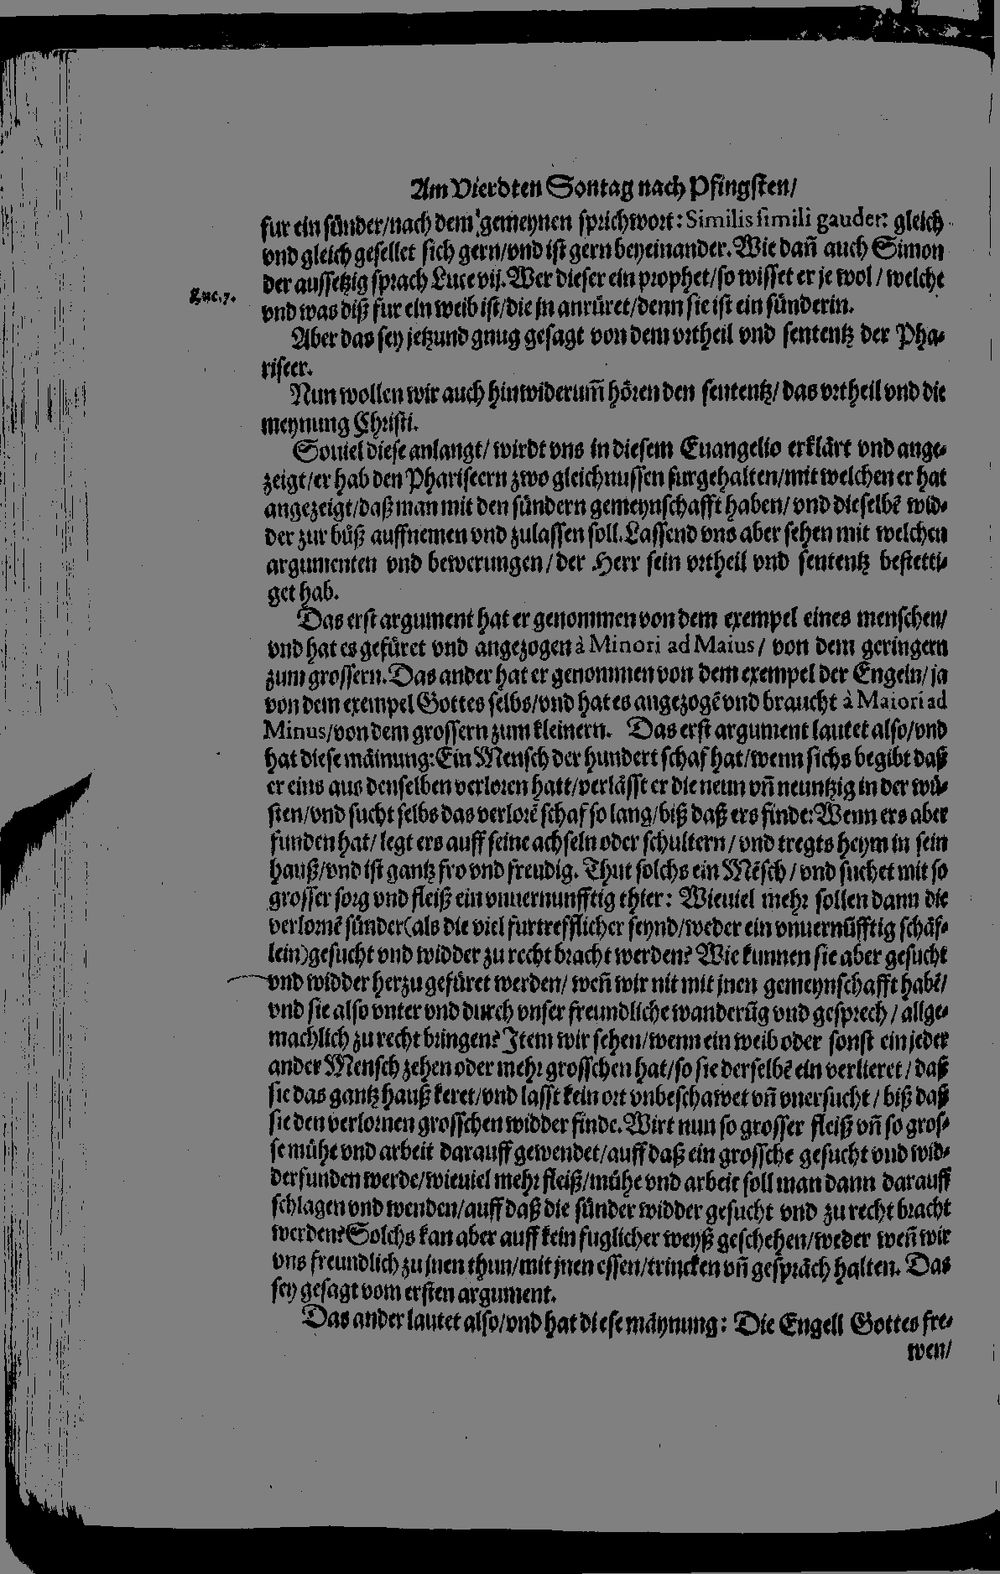 Am Vierdten Sontag nach Pfingsten/
fur ein sünder/nach dem gemeynen sprichwort: Similis simili gaudet: gleich
vnd gleich gesellet sich gern/vnd ist gern beyeinander. Wie dañ auch Simon
der aussetzig sprach Luce vij. Wer dieser ein prophet/so wisset er je wol/welche
Luc. 7.
vnd was diß fur ein weib ist/die jn anrüret/denn sie ist ein sünderin.
Aber das sey jetzund gnug gesagt von dem vrtheil vnd sententz der Pha-
riseer.
Nun wollen wir auch hinwiderum̃ hören den sententz/das vrtheil vnd die
meynung Christi.
Souiel diese anlangt/ wirdt vns in diesem Euangelio erklärt vnd ange-
zeigt/er hab den Phariseern zwo gleichnussen furgehalten/mit welchen er hat
angezeigt/daß man mit den sündern gemeynschafft haben/ vnd dieselbẽ wid-
der zur büß auffnemen vnd zulassen soll. Lassend vns aber sehen mit welchen
argumenten vnd bewerungen/der Herr sein vrtheil vnd sententz bestetti-
get hab.
Das erst argument hat er genommen von dem exempel eines menschen/
vnd hat es gefüret vnd angezogen à Minori ad Maius/ von dem geringern
zum grossern. Das ander hat er genommen von dem exempel der Engeln/ ja
von dem exempel Gottes selbs/vnd hat es angezogẽ vnd braucht à Maiori ad
Minus/von dem grossern zum kleinern. Das erst argument lautet also/vnd
hat diese mäinung: Ein Mensch der hundert schaf hat/wenn sichs begibt daß
er eins aus denselben verloren hatt/verlässt er die neun vñ neuntzig in der wü-
sten/vnd sucht selbs das verlorẽ schaf so lang/biß daß ers finde: Wenn ers aber
funden hat/ legt ers auff seine achseln oder schultern/ vnd tregts heym in sein
hauß/vnd ist gantz fro vnd freudig. Thut solchs ein Mẽsch/ vnd suchet mit so
grosser sorg vnd fleiß ein vnuernunfftig thier: Wieuiel mehr sollen dann die
verlornẽ sünder(als die viel furtrefflicher seynd/weder ein vnuernũfftig schäf-
lein)gesucht vnd widder zu recht bracht werden? Wie kunnen sie aber gesucht
vnd widder herzu gefüret werden/ weñ wir nit mit jnen gemeynschafft habẽ/
vnd sie also vnter vnd durch vnser freundliche wanderũg vnd gesprech/ allge-
machlich zu recht bringen? Item wir sehen/wenn ein weib oder sonst ein jeder
ander Mensch zehen oder mehr grosschen hat/so sie derselbẽ ein verlieret/ daß
sie das gantz hauß keret/vnd lasst kein ort vnbeschawet vñ vnersucht/ biß daß
sie den verlornen grosschen widder finde. Wirt nun so grosser fleiß vñ so gros-
se mühe vnd arbeit darauff gewendet/auff daß ein grossche gesucht vnd wid-
der funden werde/wieuiel mehr fleiß/mühe vnd arbeit soll man dann darauff
schlagen vnd wenden/auff daß die sünder widder gesucht vnd zu recht bracht
werden? Solchs kan aber auff kein fuglicher weyß geschehen/weder weñ wir
vns freundlich zu jnen thun/mit jnen essen/trincken vñ gespräch halten. Das
sey gesagt vom ersten argument.
Das ander lautet also/vnd hat diese mäynung: Die Engell Gottes fre-
wen/